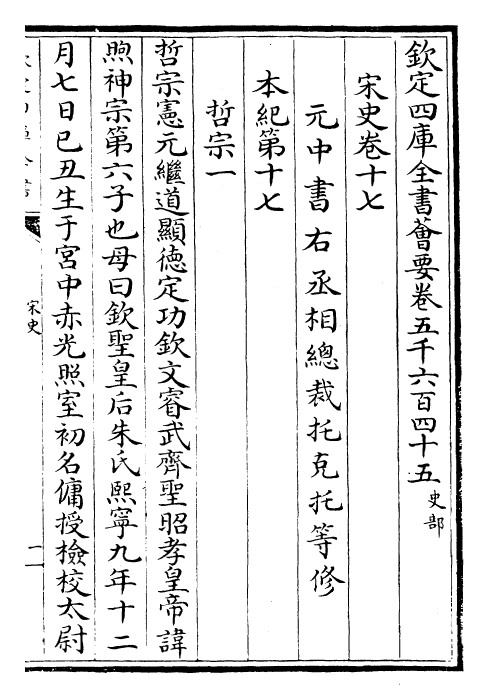 欽定四庫全書薈要卷五千六百四十五史部
宋史卷十七
元中書右丞相總裁托克托等修
本紀第十七
哲宗一
哲宗憲元繼道顯德定功欽文睿武齊聖昭孝皇帝諱
煦神宗第六子也母曰欽聖皇后朱氏熙寧九年十二
月七日己丑生于宮中赤光照室初名傭授檢校太尉
宋史